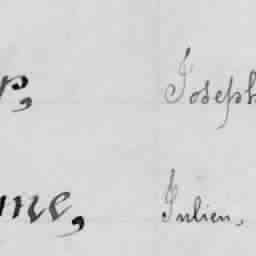 r, Joseph
me, Julien,